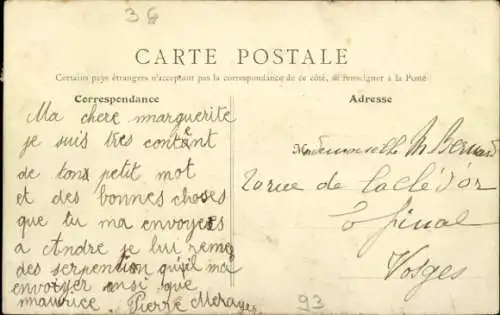 36
CARTE POSTALE
Certains pays étrangers n'acceptant pas la correspondance de ce côté, se renseigner à la Poste
Correspondance
Adresse
Ma chere marguerite
je suis tres contente
de ton petit mot
et des bonnes choses
que tu ma envoyer
a Andre je lui remer
des serpention qu'il ma
envoyer ansi que
maurice Pierre
Mademoiselle M Bernard
rue de la clé d'or
Epinal
Vosges
93